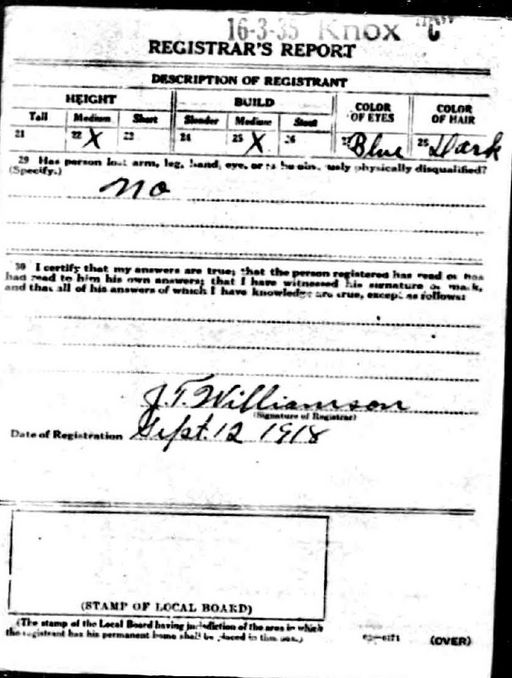 16-3-35 Knox "C"
REGISTRAR'S REPORT
DESCRIPTION OF REGISTRANT
HEIGHT BUILD COLOR OF EYES COLOR OF HAIR
Tall Medium Short Slender Medium Stout
21 22 X 23 24 25 X 26 27 Blue 28 Dark
29 Has person lost arm, leg, hand, eye, or is he obviously physically disqualified?
(Specify.) No
30 I certify that my answers are true; that the person registered has read or has
had read to him his own answers; that I have witnessed his signature or mark,
and that all of his answers of which I have knowledge are true, except as follows:
J. T. Williamson
(Signature of Registrar)
Date of Registration Sept. 12 1918
(STAMP OF LOCAL BOARD)
(The stamp of the Local Board having jurisdiction of the area in which
the registrant has his permanent home shall be placed in this box.)
(OVER)